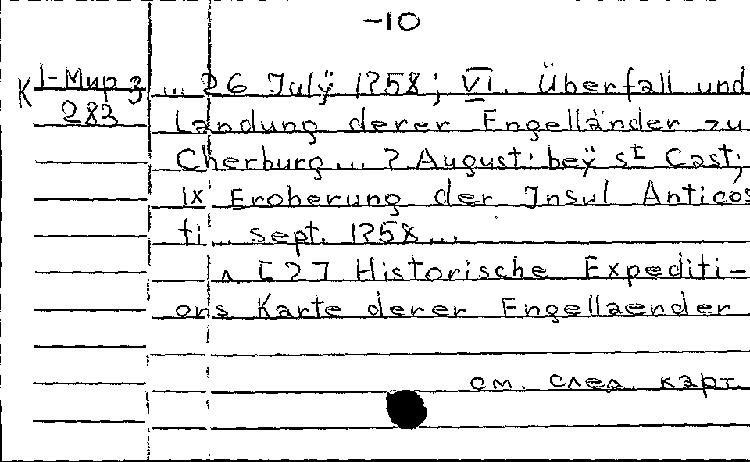 -10
К 1-Мир 3 ... 26 Julÿ 1758; VI. Überfall und
283 Landung derer Engelländer zu
Cherburg... 7 August: beÿ st Cast;
IX Eroberung der Insul Anticos
ti... sept. 1758...
^ [?] Historische Expediti-
ons Karte derer Engellaender
см. след. карт.